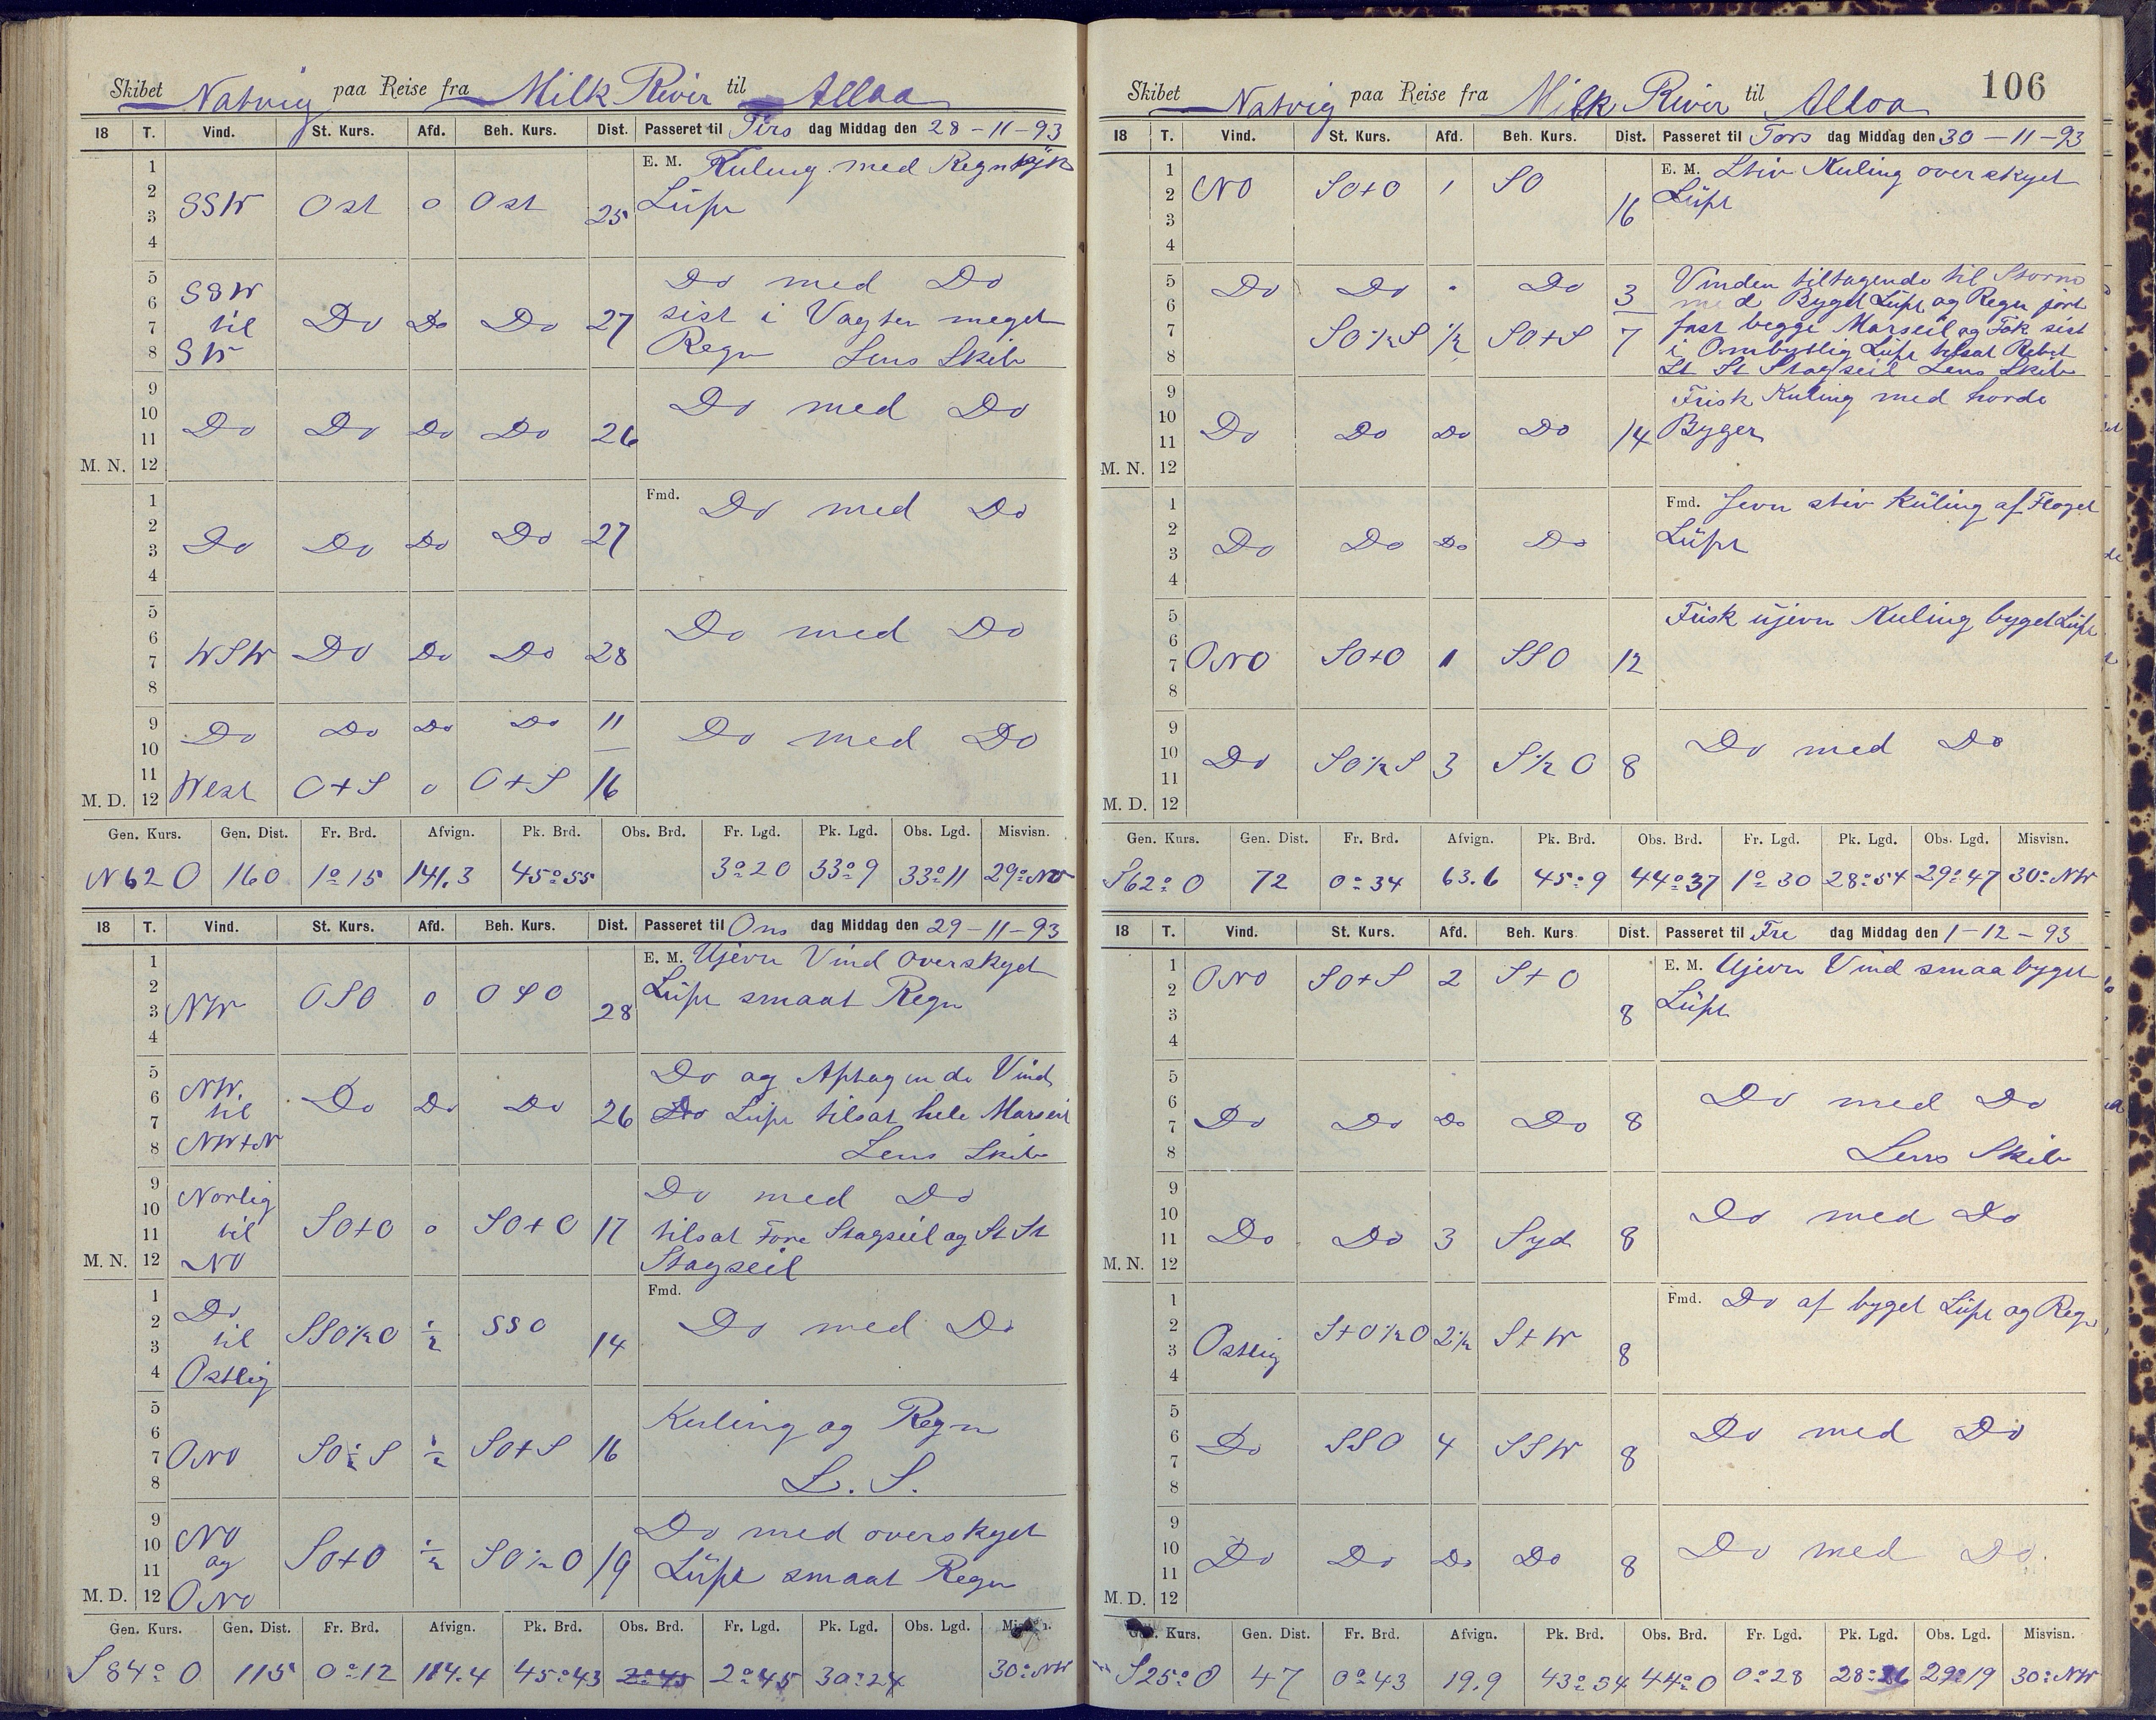 Skibet Natvig paa Reise fra Milk River til Alloa
18 T. Vind. St. Kurs. Afd. Beh. Kurs. Dist. Passeret til Tirs dag Middag den 28-11-93
1 E. M. Kuling med Regntjk
2 SSW Ost o Ost 25 Lüft
3
4
5 SSW Do med Do
6 til Do Do Do 27 sist i Vagten meget
7 SW Regn Lens Skib
8
9 Do med Do
10 Do Do Do Do 26
11
M. N. 12
1 Fmd. Do med Do
2 Do Do Do Do 27
3
4
5 Do med Do
6 WSW Do Do Do 28
7
8
9 Do Do Do Do 11 Do med Do
10
11 West O+S o O+S 16
M. D. 12
Gen. Kurs. Gen. Dist. Fr. Brd. Afvign. Pk. Brd. Obs. Brd. Fr. Lgd. Pk. Lgd. Obs. Lgd. Misvisn.
N 62 O 160 1º15 141.3 45º55 3º20 33º9 33º11 29º NW
18 T. Vind. St. Kurs. Afd. Beh. Kurs. Dist. Passeret til Ons dag Middag den 29-11-93
1 E. M. Ujevn Vind overskyet
2 NW OSO o OSO 28 Lüft smaat Regn
3
4
5 NW. Do og Aftagende Vind
6 til Do Do Do 26 Do Lüft tilsat hele Marseil
7 NW+N Lens Skib
8
9 Norlig Do med Do
10 til SO+O o SO+O 17 tilsat Fore Stagseil og St St
11 NO Stagseil
M. N. 12
1 Do Fmd.
2 til SSO½O ½ SSO 14 Do med Do
3 Ostlig
4
5 Kuling og Regn
6 ONO SO½S ½ SO+S 16
7 L. S.
8
9 NO Do med overskyet
10 og SO+O ½ SO½O 19 Lüft smaat Regn
11 ONO
M. D. 12
Gen. Kurs. Gen. Dist. Fr. Brd. Afvign. Pk. Brd. Obs. Brd. Fr. Lgd. Pk. Lgd. Obs. Lgd. Misvisn.
S 84º O 115 0º12 114.4 45º43 2º45 2º45 30º24 30º NW
106
Skibet Natvig paa Reise fra Milk River til Alloa
18 T. Vind. St. Kurs. Afd. Beh. Kurs. Dist. Passeret til Tors dag Middag den 30-11-93
1 E. M. Stiv Kuling overskyet
2 NO SO+O 1 SO 16 Lüft
3
4
5 Do Do " Do 3 Vinden tiltagende til Storm
6 med Byget Lüft og Regn gjort
7 SO½S ½ SO+S 7 fast begge Marseil og Fok sist
8 i Ombytlig Lüft tilsat Rebet
St St Stagseil Lens Skib
9 Frisk Kuling med horde
10 Do Do Do Do 14 Byger
11
M. N. 12
1 Fmd. Jevn stiv Küling af Floget
2 Do Do Do Do Lüft
3
4
5 Frisk üjevn Kuling byget Lüft
6 ONO SO+O 1 SSO 12
7
8
9 Do med Do
10 Do SO½S 3 S½O 8
11
M. D. 12
Gen. Kurs. Gen. Dist. Fr. Brd. Afvign. Pk. Brd. Obs. Brd. Fr. Lgd. Pk. Lgd. Obs. Lgd. Misvisn.
S 62º O 72 0º34 63.6 45º9 44º37 1º30 28º54 29º47 30º NW
18 T. Vind. St. Kurs. Afd. Beh. Kurs. Dist. Passeret til Fre dag Middag den 1-12-93
1 E. M. Ujevn Vind smaa byget
2 ONO SO+S 2 S+O 8 Lüft
3
4
5 Do med Do
6 Do Do Do Do 8
7 Lens Skib
8
9 Do med Do
10 Do Do 3 Syd 8
11
M. N. 12
1 Fmd. Do af byget Lüft og Regn
2 Ostlig S+O½O 2½ S+W 8
3
4
5 Do med Do
6 Do SSO 4 SSW 8
7
8
9 Do med Do.
10 Do Do Do Do 8
11
M. D. 12
Gen. Kurs. Gen. Dist. Fr. Brd. Afvign. Pk. Brd. Obs. Brd. Fr. Lgd. Pk. Lgd. Obs. Lgd. Misvisn.
S 25º O 47 0º43 19.9 43º54 44º0 0º28 28º26 29º19 30º NW